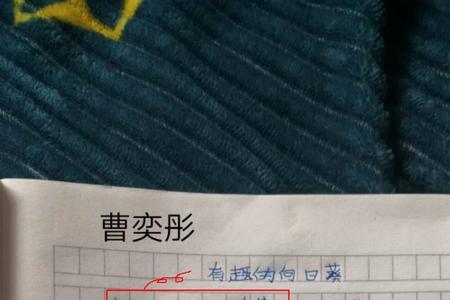 曹奕彤
有趣的向日葵